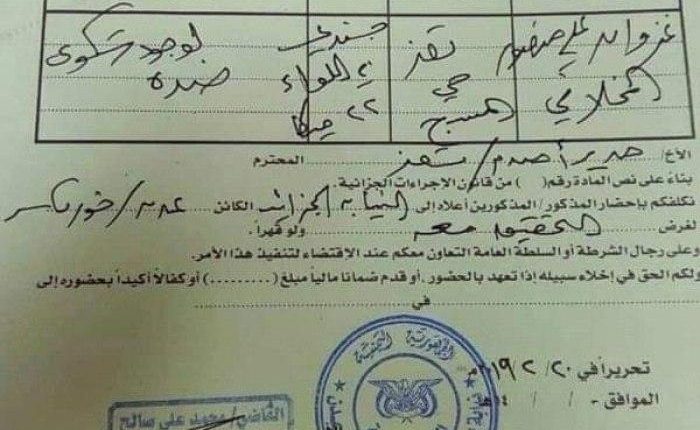 غزوان علي منصور المخلافي
تعز حي المسبح
جندي في اللواء ٢٢ ميكا
لوجود شكوى ضده
الأخ/ مدير أمن م/ تعز المحترم
بناءً على نص المادة رقم ( ) من قانون الإجراءات الجزائية.
نكلفكم بإحضار المذكور/ المذكورين أعلاه إلى النيابة الجزائية الكائن عدن/ خورمكسر
لغرض التحقيق معه ولو قهراً.
وعلى رجال الشرطة أو السلطة العامة التعاون معكم عند الاقتضاء لتنفيذ هذا الأمر.
ولكم الحق في إخلاء سبيله إذا تعهد بالحضور. أو قدم ضماناً مالياً مبلغ (.........) أو كفالاً أكيداً بحضوره إلى
في
تحريراً في ٢٠/ ٢/ ٢٠١٩م
الموافق - / / ١٤هـ
الجمهورية اليمنية
القاضي/ محمد علي صالح